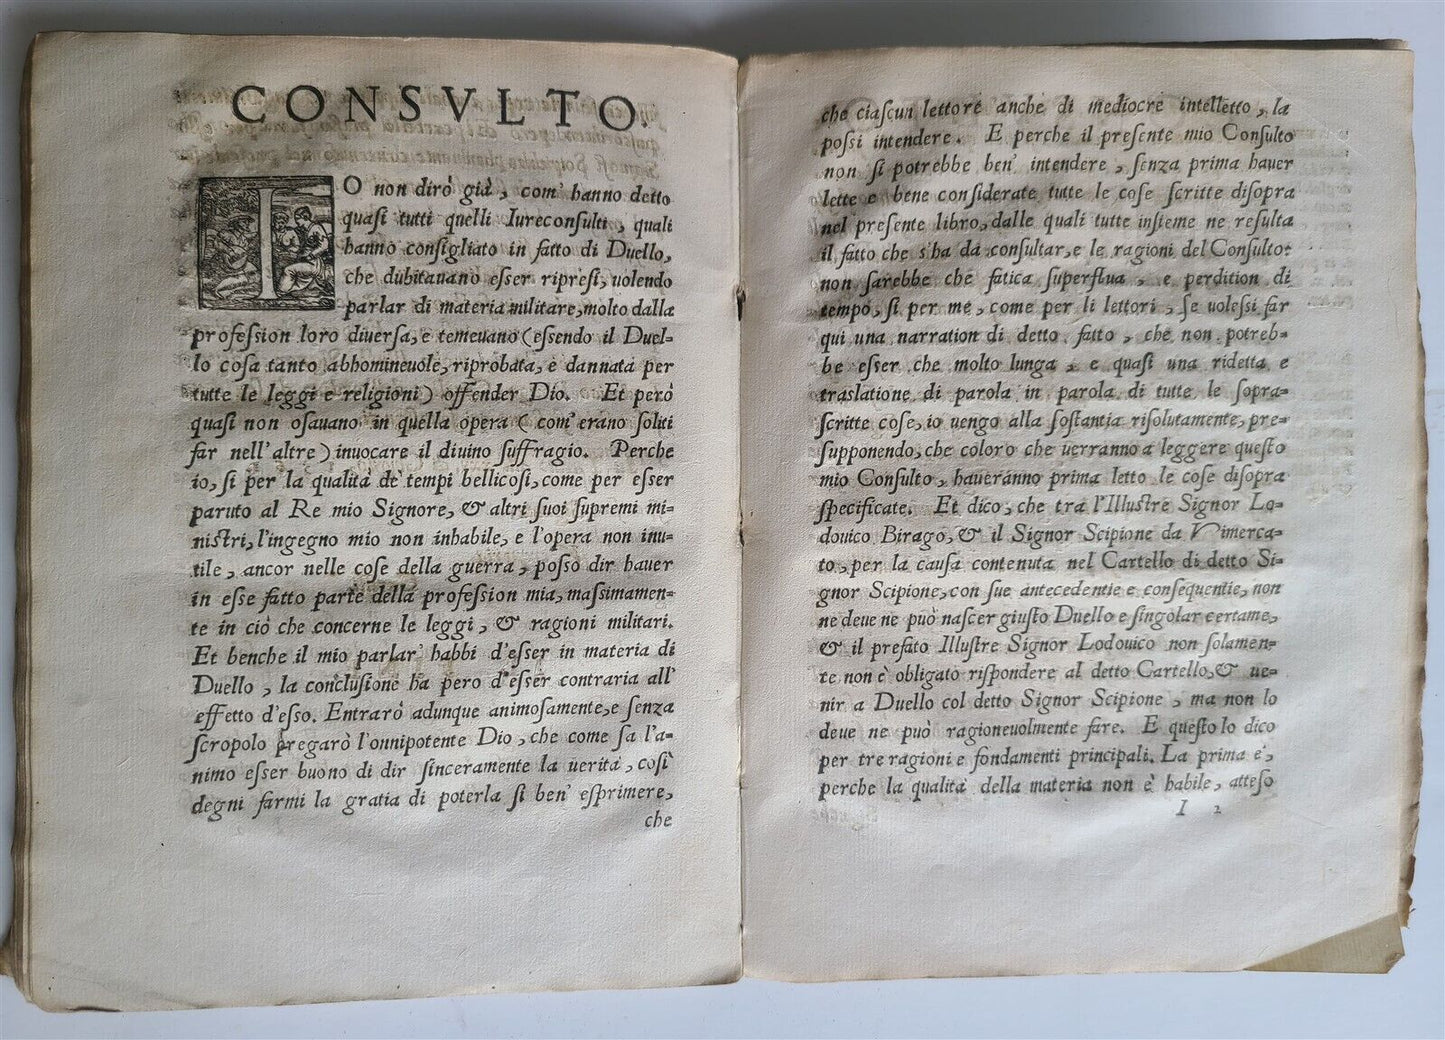 CONSVLTO.
IO non dirò già, com' hanno detto
quasi tutti quelli Iureconsulti, quali
hanno consigliato in fatto di Duello,
che dubitauano esser ripresi, uolendo
parlar di materia militare, molto dalla
profession loro diuersa, e temeuano (essendo il Duel-
lo cosa tanto abhomineuole, riprobata, e dannata per
tutte le leggi e religioni) offender Dio. Et però
quasi non osauano in quella opera (com' erano soliti
far nell' altre) inuocare il diuino suffragio. Perche
io, si per la qualità de tempi bellicosi, come per esser
paruto al Re mio Signore, & altri suoi supremi mi-
nistri, l'ingegno mio non inhabile, e l'opera non inu-
tile, ancor nelle cose della guerra, posso dir hauer
in esse fatto parte della profession mia, massimamen-
te in ciò che concerne le leggi, & ragioni militari.
Et benche il mio parlar' habbi d'esser in materia di
Duello, la conclusione ha pero d'esser contraria all'
effetto d'esso. Entrarò adunque animosamente, e senza
scropolo pregarò l'onnipotente Dio, che come sa l'a-
nimo esser buono di dir sinceramente la uerità, così
degni farmi la gratia di poterla si ben' esprimere,
che
che ciascun lettore anche di mediocre intelletto, la
possi intendere. E perche il presente mio Consulto
non si potrebbe ben' intendere, senza prima hauer
lette e bene considerate tutte le cose scritte disopra
nel presente libro, dalle quali tutte insieme ne resulta
il fatto che s'ha da consultar, e le ragioni del Consulto:
non sarebbe che fatica superflua, e perdition di
tempo, si per me, come per li lettori, se uolessi far
qui una narration di detto fatto, che non potreb-
be esser che molto lunga, e quasi una ridetta e
traslatione di parola in parola di tutte le sopra-
scritte cose, io uengo alla sostantia risolutamente, pre-
supponendo, che coloro che uerranno a leggere questo
mio Consulto, haueranno prima letto le cose disopra
specificate. Et dico, che tra l'Illustre Signor Lo-
douico Birago, & il Signor Scipione da Vimerca-
to, per la causa contenuta nel Cartello di detto Si-
gnor Scipione, con sue antecedentie e consequentie, non
ne deue ne può nascer giusto Duello e singolar certame,
& il prefato Illustre Signor Lodouico non solamen-
te non è obligato rispondere al detto Cartello, & ue-
nir a Duello col detto Signor Scipione, ma non lo
deue ne può ragioneuolmente fare. E questo lo dico
per tre ragioni e fondamenti principali. La prima e,
perche la qualità della materia non è habile, atteso
I 2